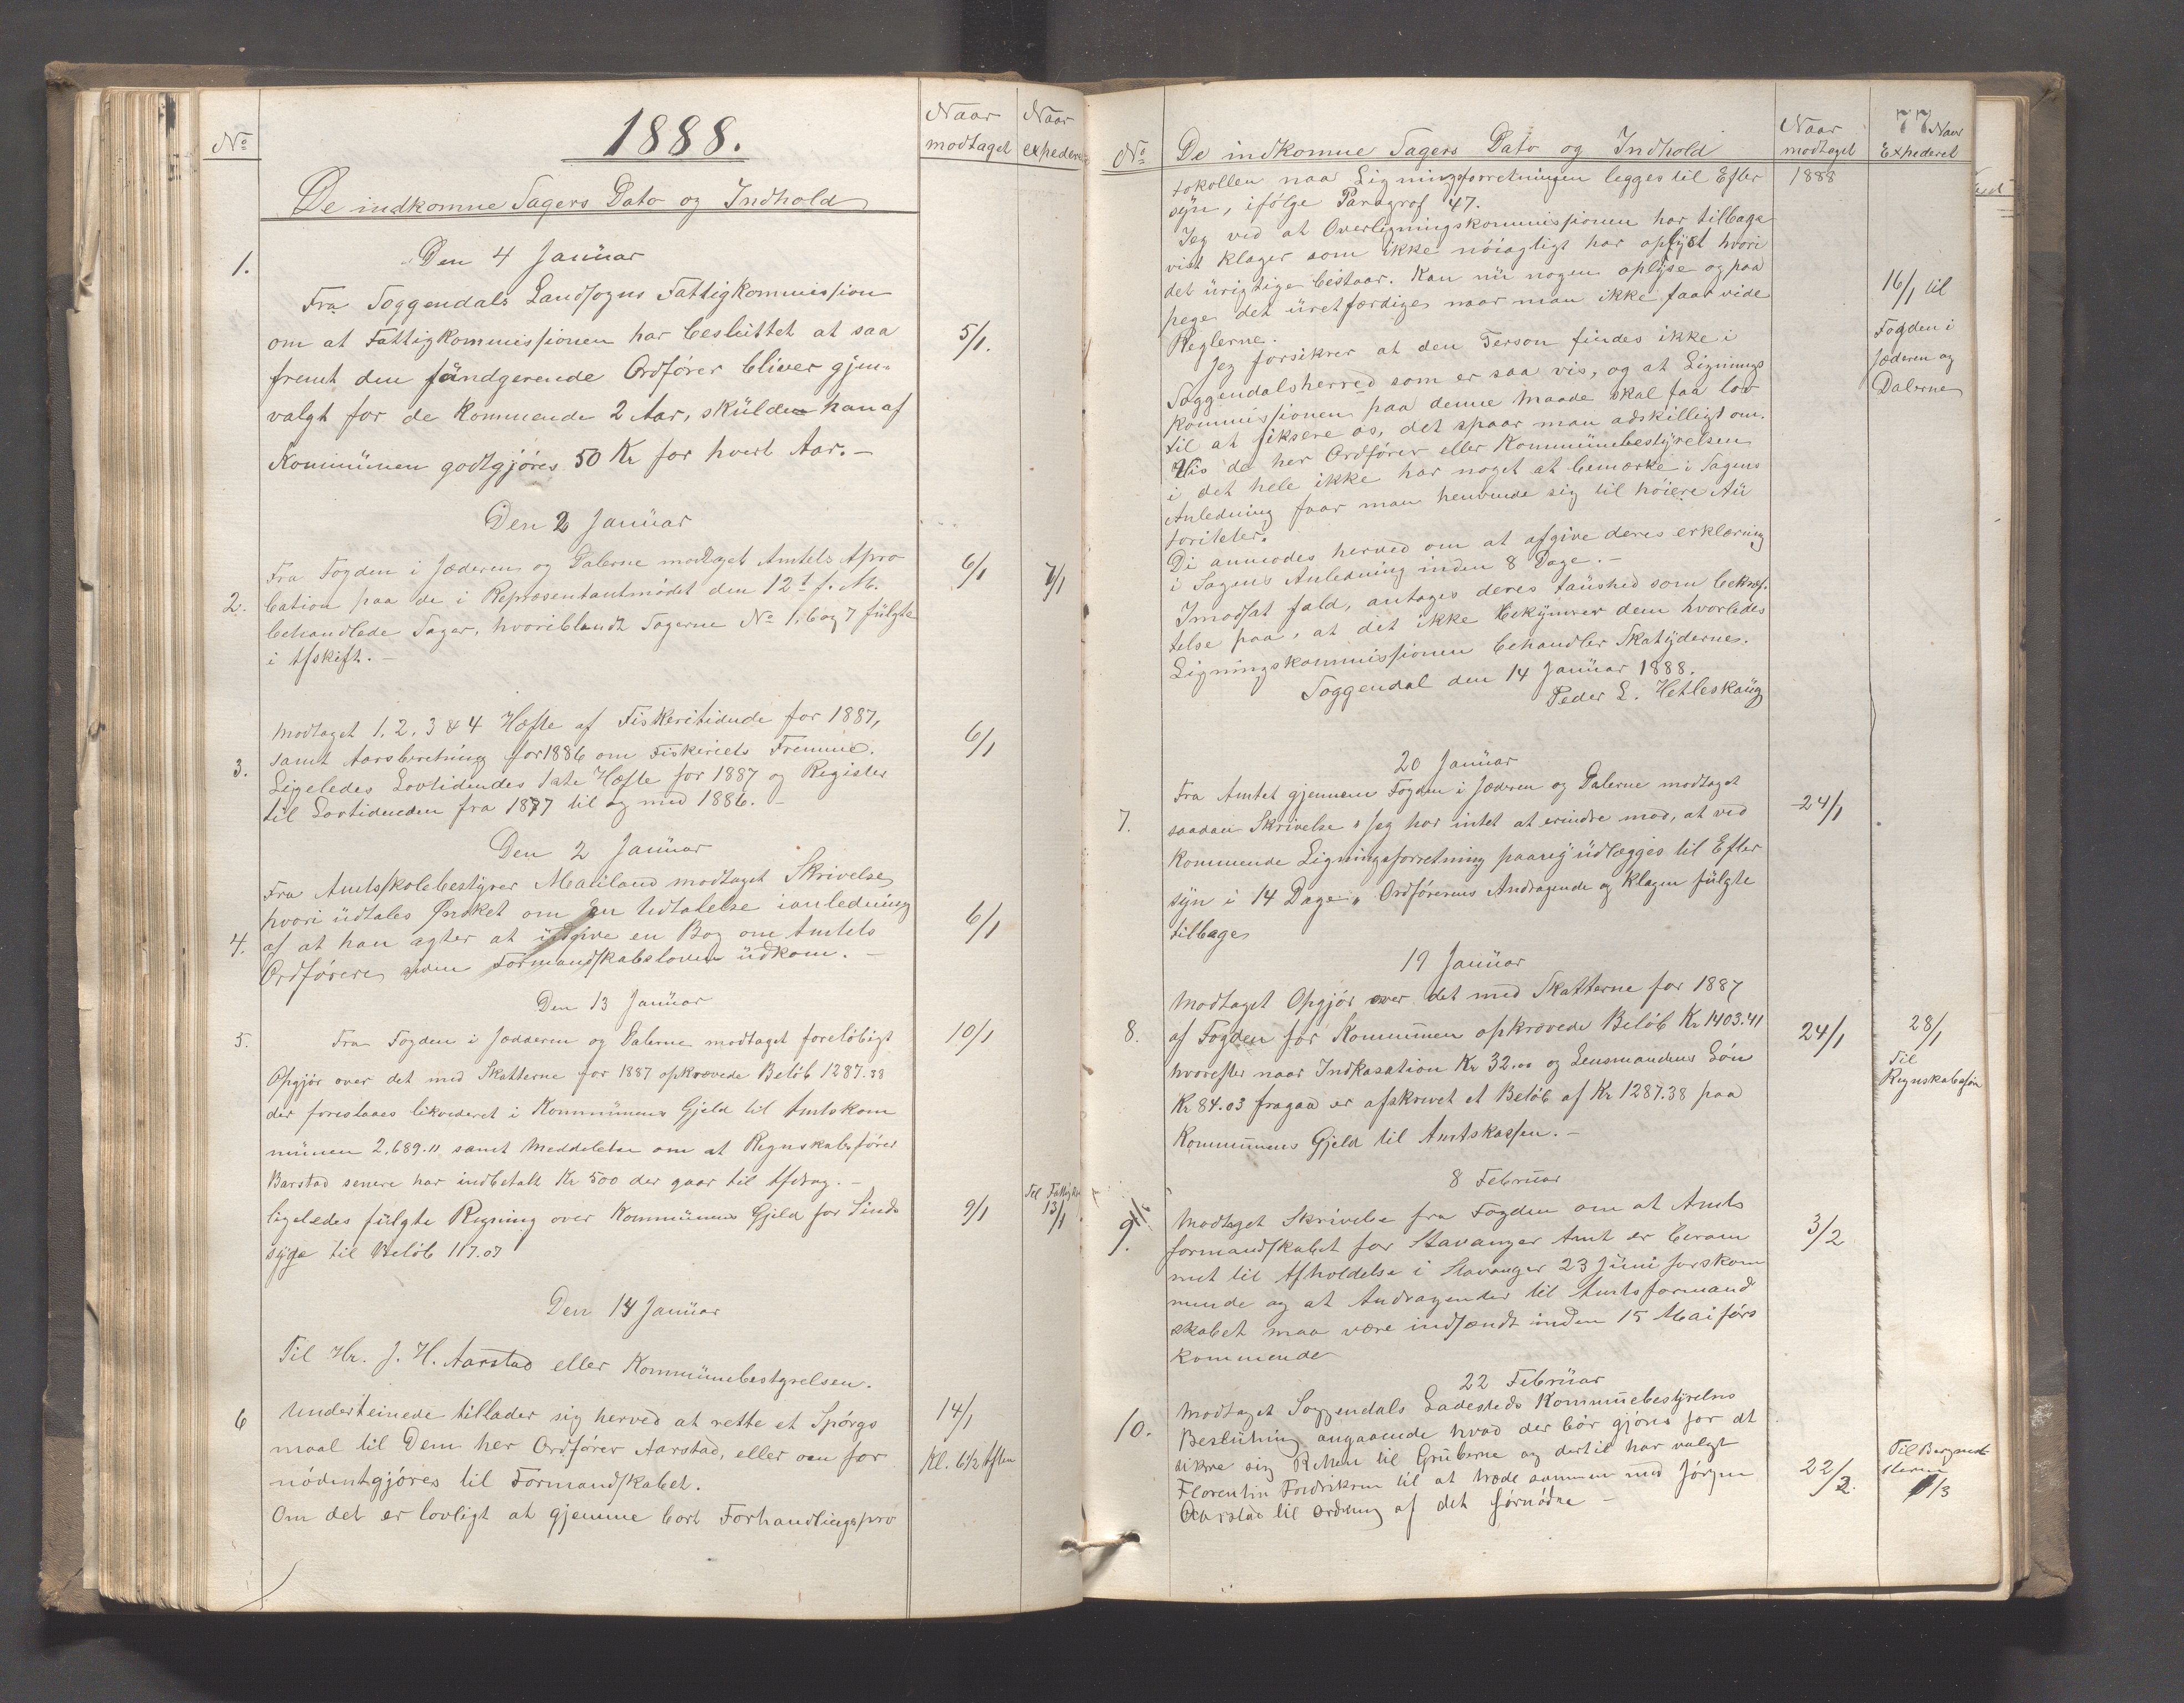 1888.
No
Naar modtaget
Naar expederet
De indkomne Sagers Dato og Indhold
Den 4 Januar
1.
Fra Soggendals Landsogns Fattigkommission
om at Fattigkommissionen har besluttet at saa
5/1.
fremt den fungerende Ordfører bliver gjen-
valgt for de kommende 2 Aar, skulde han af
Kommunen godtgjøres 50 Kr for hvert Aar. –
Den 2 Januar
Fra Fogden i Jæderen og Dalerne modtaget Amtets Apro
6/1
7/1
2.
bation paa de i Repræsentantmødet den 12te f. M.
behandlede Sager, hvoriblandt Sagerne No 1, 6 og 7 fulgte
i Afskift. –
Modtaget 1. 2. 3 & 4 Hæfte af Fiskeritidende for 1887,
6/1
3.
samt Aarsberetning for 1886 om Fiskeriets Fremme.
Ligeledes Lovtidendes 1ste Hæfte for 1887 og Register
til Lovtidenden fra 1877 til og med 1886. –
Den 2 Januar
Fra Amtsskolebestyrer Mauland modtaget Skrivelse
hvori udtales Ønsket om en Udtalelse ianledning
4.
af at han agter at udgive en Bog om Amtets
6/1
Ordførere siden Formandskabsloven udkom. –
Den 13 Januar
5.
Fra Fogden i Jædderen og Dalerne modtaget foreløbigt
10/1
Opgjør over det med Skatterne for 1887 opkrævede Beløb 1287.38
der foreslaaes likvideret i Kommunens Gjeld til Amtskom
munen 2.689.11 samt Meddelelse om at Regnskabsfører
Barstad senere har indbetalt Kr 500 der gaar til Afdrag. –
ligeledes fulgte Regning over Kommunens Gjeld for Sinds
9/1
Til Fattigko
13/1
syge til Beløb 117.07
Den 14 Januar
Til Hr. J. H. Aarstad eller Kommunebestyrelsen.
6
Underteinede tillader sig herved at rette et Spørgs
14/1
maal til Dem her Ordfører Aarstad, eller om for
Kl. 6 1/2 Aften
nødentgjøres til Formandskabet.
Om det er lovligt at gjemme bort Forhandlingspro
77
No
De indkomne Sagers Dato og Indhold
Naar modtaget
Naar Expederet
tokollen naar Ligningsforretningen legges til Efter
1888
syn, ifølge Paragrof 47.
Jeg ved at Overligningskommissionen har tilbage
vist klager som ikke nøiagtigt har oplyst hvori
det urigtige bestaar. Kan nu nogen oplyse og paa
pege det uretfærdige naar man ikke faar vide
16/1 til
Fogden i
Jæderen og
Dalerne
Reglerne.
Jeg forsikrer at den Person findes ikke i
Soggendalsherred som er saa vis, og at Lignings
kommissionen paa denne Maade skal faa lov
til at fiksere os, det spaar man adskilligt om.
Vis de her Ordfører eller Kommunebestyrelsen
i det hele ikke har noget at bemærke i Sagens
Anledning faar man henvende sig til høiere Au
toriteter.
Di anmodes herved om at afgive deres erklæring
i Sagens Anledning inden 8 Dage. –
Imodsat fald, antages deres taushed som bekræf-
telse paa, at det ikke bekymrer dem hvorledes
Ligningskommissionen behandler Skatyderne.
Soggendal den 14 Januar 1888.
Peder L. Hetleskaug
20 Januar
Fra Amtet gjennem Fogden i Jæderen og Dalerne modtaget
7.
saadan Skrivelse "Jeg har intet at erindre mod, at ved
24/1
kommende Ligningsforretning paany udlægges til Efter
syn i 14 Dage" Ordførerens Andragende og Klagen fulgte
tilbage
19 Januar
Modtaget Opgjør over det med Skatterne for 1887
8.
af Fogden for Kommunen opkrævede Beløb Kr 1403.41
24/1
28/1
Til
Regnskabsfør
hvorefter naar Indkasation Kr 32.00 og Lensmandens Løn
Kr 84.03 fragaar er afskrevet et Beløb af Kr 1287.38 paa
Kommunens Gjeld til Amtskassen. –
8 Februar
9.
Modtaget Skrivelse fra Fogden om at Amts
formandskabet for Stavanger Amt er beram
3/2
met til Afholdelse i Stavanger 23 Juni førskom
mende og at Andragender til Amtsformand
skabet maa være indsendt inden 15 Mai førs
kommende
22 Februar
Modtaget Soggendals Ladesteds Kommunebestyrelses
10.
Beslutning angaaende hvad der bør gjøres for at
sikre sig Retten til Gruberne og dertil har valgt
Florentin Fredriksen til at træde sammen med Jørgen
22/2.
Til Bergmesteren
1/3
Aarstad til ordning af det fornødne –